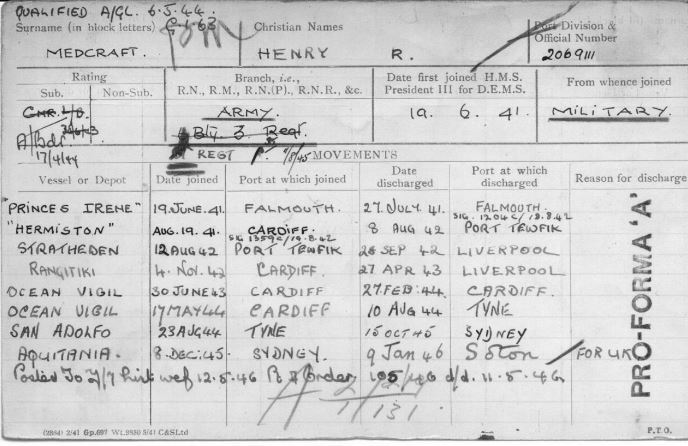 QUALIFIED A/GL. 6.5.44.
Surname (in block letters) Christian Names Port Division & Official Number
MEDCRAFT. HENRY R. 2069111
Rating Branch, i.e., Date first joined H.M.S. From whence joined
Sub. Non-Sub. R.N., R.M., R.N.(P)., R.N.R., &c. President III for D.E.M.S.
GNR. L/B. ARMY 19. 6. 41. MILITARY.
A/Bdr. Bty 3 Regt.
17/4/44
REGT 1/8/45 MOVEMENTS
Vessel or Depot Date joined Port at which joined Date discharged Port at which discharged Reason for discharge
"PRINCES IRENE" 19. JUNE. 41. FALMOUTH. 27. JULY. 41. FALMOUTH.
SIG. 1204C/19.8.42
"HERMISTON" AUG. 19. 41 CARDIFF. 8 AUG 42 PORT TEWFIK
SIG 1359C/19.8.42
STRATHEDEN 12 AUG 42 PORT TEWFIK 26 SEP 42 LIVERPOOL
RANGITIKI 4. NOV. 42 CARDIFF. 27 APR 43 LIVERPOOL
OCEAN VIGIL 30 JUNE 43 CARDIFF 27. FEB. 44. CARDIFF.
OCEAN VIGIL 17 MAY 44 CARDIFF 10 AUG 44 TYNE
SAN ADOLFO 23 AUG 44 TYNE 15 OCT 45 SYDNEY
AQUITANIA. 8. DEC. 45. SYDNEY. 9 Jan 46 S'oton FOR UK
Posted To wef 12.5.46 Pt II Order 105/46 d/d. 11.5.46
131
PRO-FORMA 'A'
(2884) 2/41 Gp.697 Wt.9880 5/41 C&SLtd P.T.O.